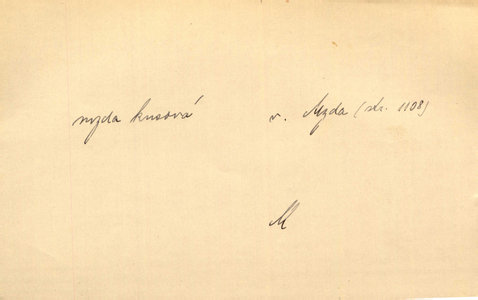 mzda kusová v. Mzda (str. 1108)
M